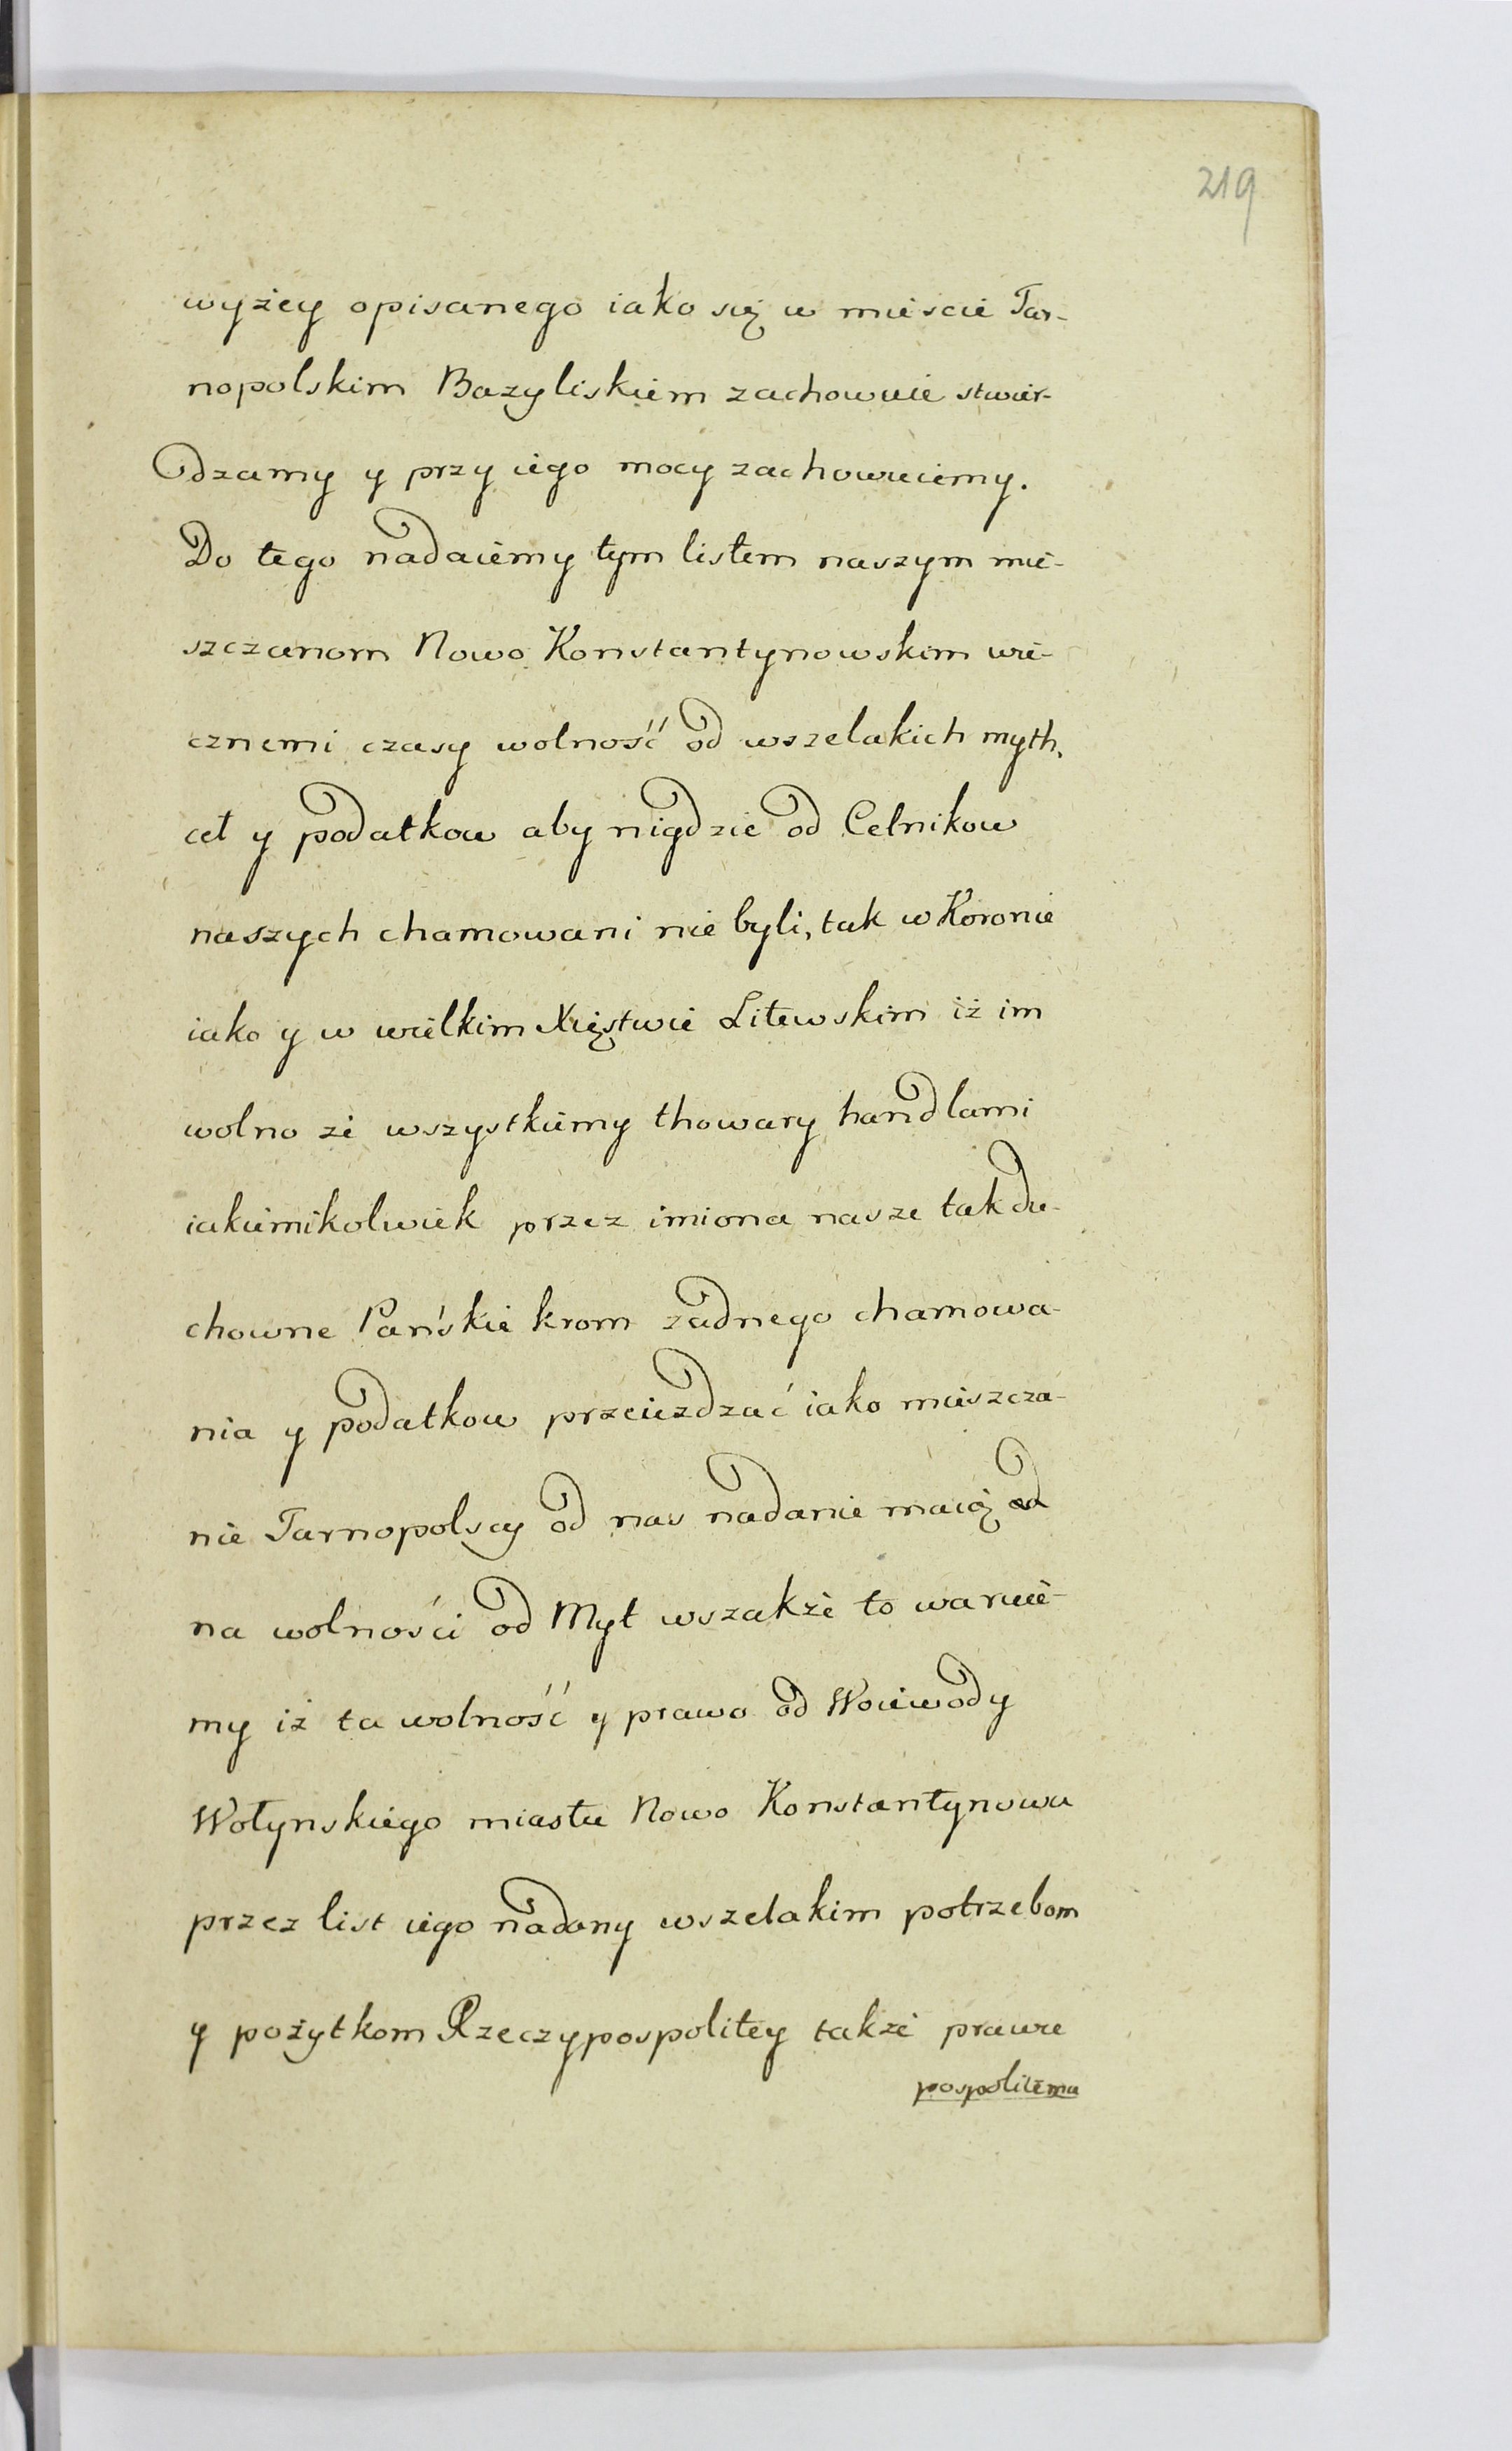 219
wyżey opisanego iako się w mieście Tar-
nopolskim Bazyliskiem zachowuie stwier-
dzamy y przy iego mocy zachowuiemy.
Do tego nadaiemy tym listem naszym mie-
szczanom Nowo Konstantynowskim wie-
cznemi czasy wolność od wszelakich myth,
ceł y podatkow aby nigdzie od Celnikow
naszych chamowani nie byli, tak w Koronie
iako y w wielkim Xięstwie Litewskim iż im
wolno ze wszystkiemy thowary handlami
iakiemikolwiek przez imiona nasze tak du-
chowne Pańskie krom żadnego chamowa-
nia y podatkow przeieżdzać iako mieszcza-
nie Tarnopolscy od nas nadanie maią od
na wolności od Myt wszakże to waruie-
my iż ta wolność y prawo od Woiewody
Wołynskiego miastu Nowo Konstantynowu
przez list iego nadany wszelakim potrzebom
y pożytkom Rzeczypospolitey także prawu
pospolitemu